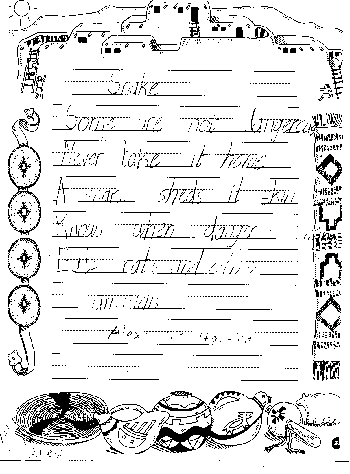 Snake
Some are not dangerous
Never take it home
A snake sheds it skin
Knows when danger
Eats rats and other
animals
Alex